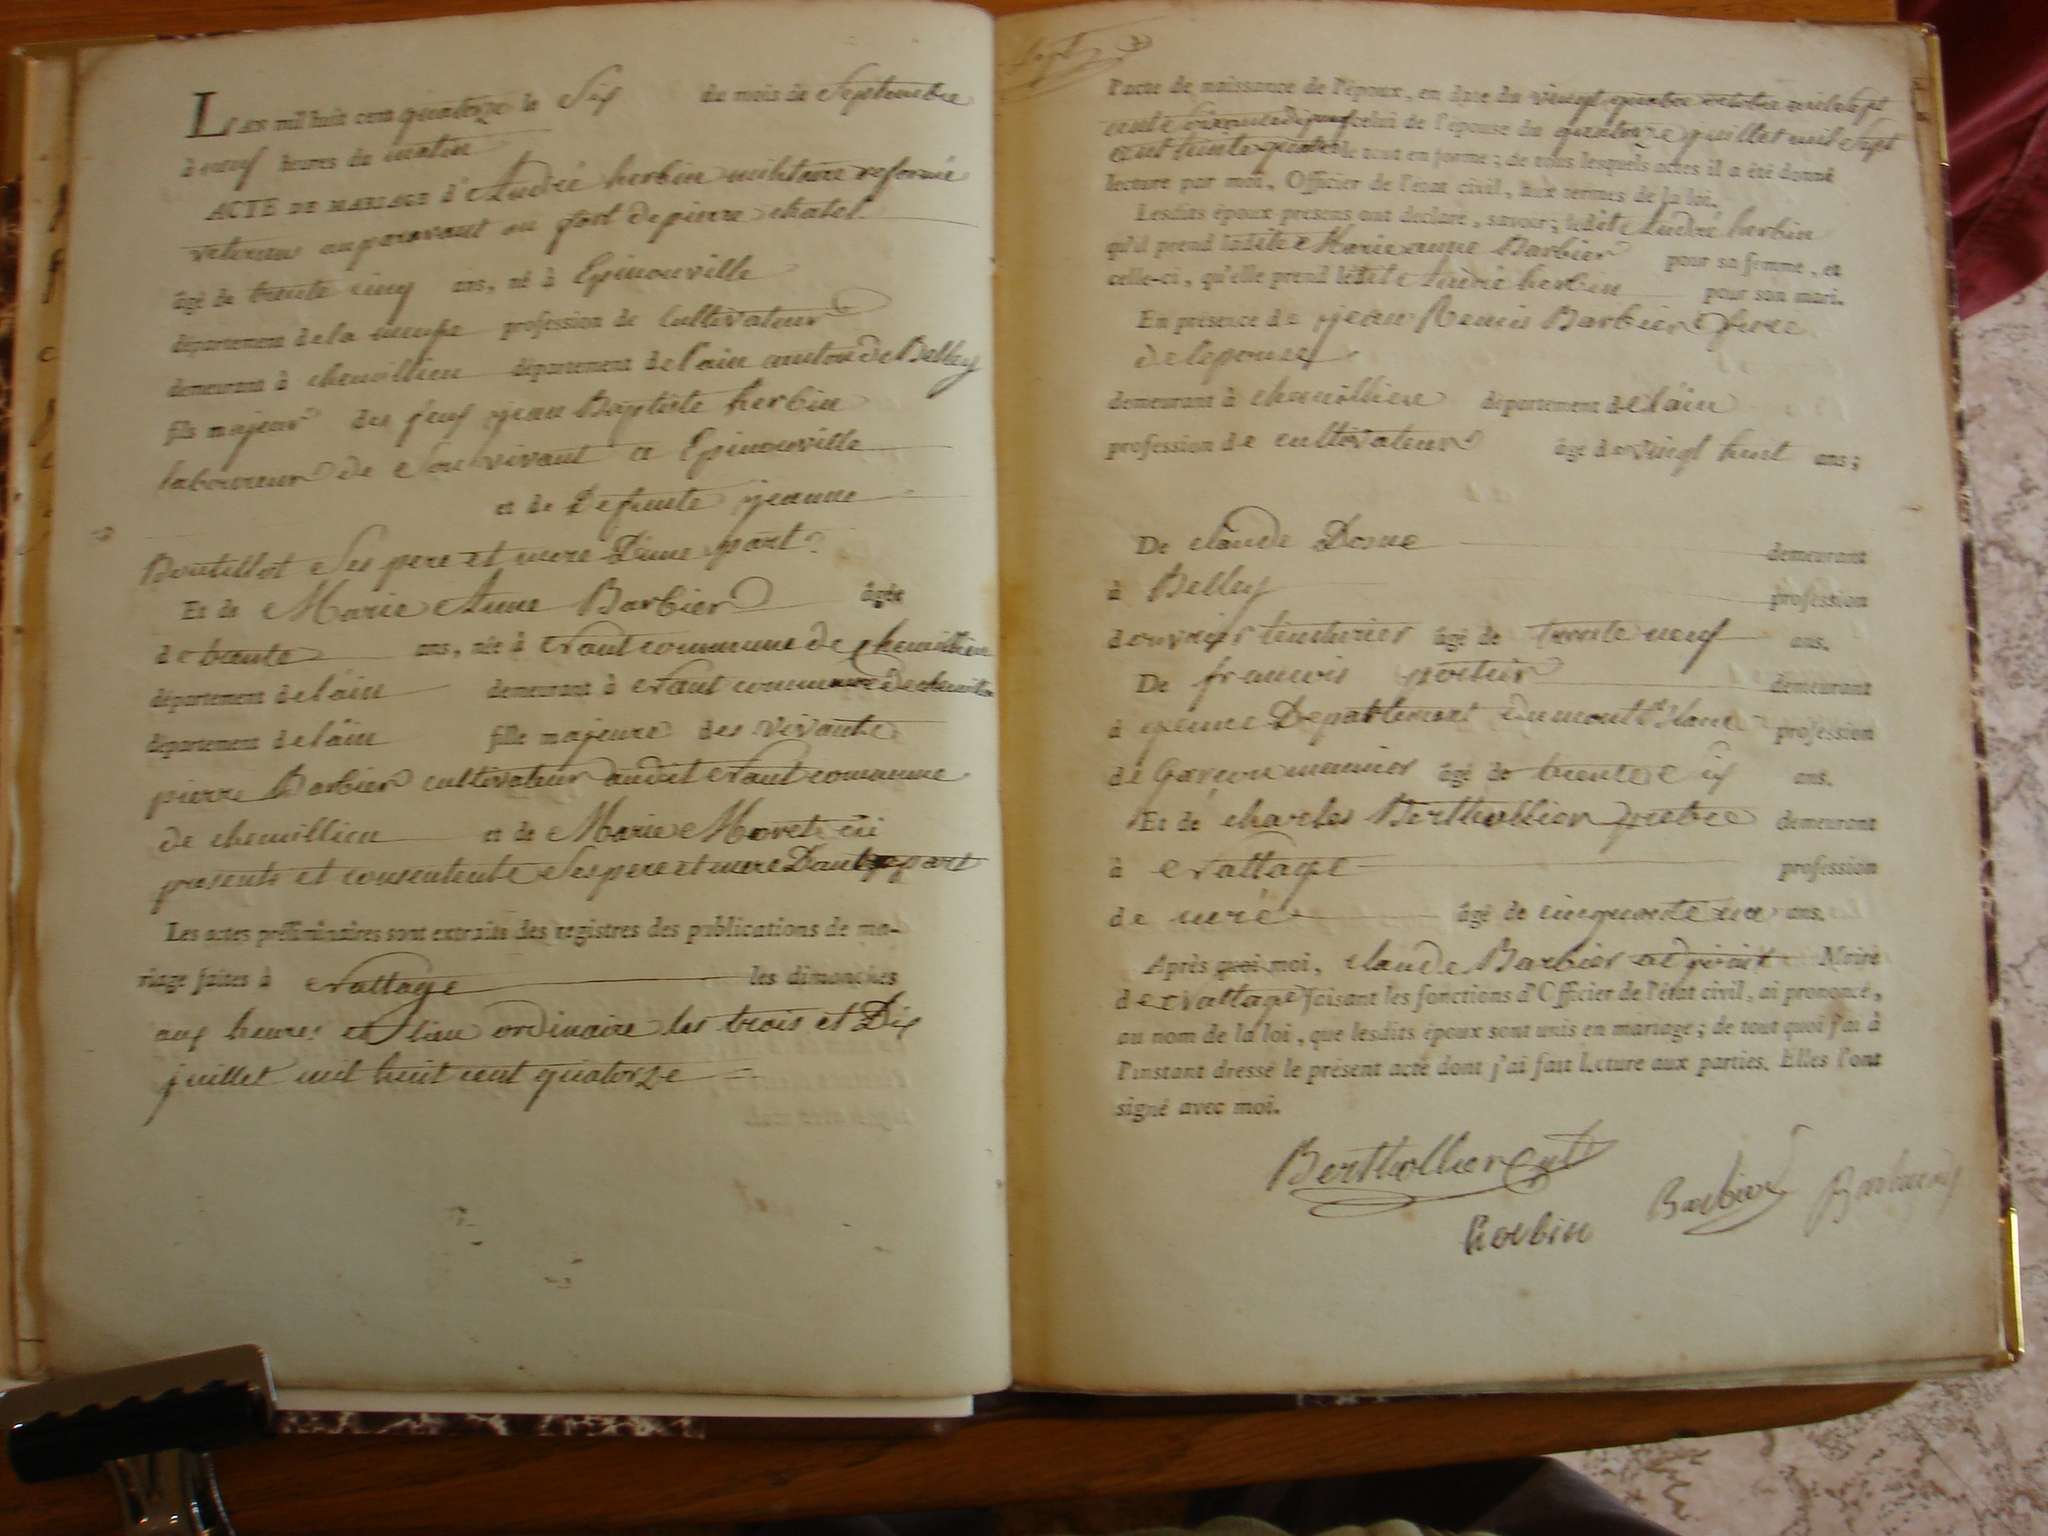 L'an mil huit cent quatorze le Six du mois de Septembre
à neuf heures du matin
ACTE DE MARIAGE d'André herbin militaire reformé
veterans auparavant au fort de pierre chatel
âgé de trente cinq ans, né à Epinonville
département de la meuse profession de Cultivateur
demeurant à chemillieu département de l'ain canton de Belley
fils majeur des feus jean Baptiste herbin
laboureur de son vivant a Epinonville
et de Defunte jeanne
Boutillot Ses pere et mere D'une part
Et de Marie Anne Barbier âgée
de trente ans, née à commune de chemillieu
département de l'ain demeurant à commune de chemillieu
département de l'ain fille majeure des vivants
pierre Barbier cultivateur audit commune
de chemillieu et de Marie Moret ici
presents et consentents Ses pere et mere D'autre part
Les actes préliminaires sont extraits des registres des publications de ma-
riage faites à Nattage les dimanches
aux heures et lieu ordinaire les trois et Dix
juillet mil huit cent quatorze
l'acte de naissance de l'époux, en date du vingt quatre octobre mil sept
cent celui de l'épouse du quatorze juillet mil Sept
cent le tout en forme; de tous lesquels actes il a été donné
lecture par moi, Officier de l'état civil, aux termes de la loi.
Lesdits époux présens ont déclaré, savoir; ledit André herbin
qu'il prend ladite Marie anne Barbier pour sa femme, et
celle-ci, qu'elle prend ledit André herbin pour son mari.
En présence de jean Remis Barbier frere
de lepouse
demeurant à chemillieu département de l'ain
profession de cultivateur âgé de vingt huit ans;
De claude Dosne demeurant
à Belley profession
d'ouvrier tinturier âgé de trente neuf ans.
De francois demeurant
à yenne Departement du mont blanc profession
de Garçon munier âgé de trente six ans.
Et de charles Berthollier pretre demeurant
à Nattage profession
de curé âgé de cinquante un ans.
Après quoi moi, claude Barbier adjoint Maire
de Nattage faisant les fonctions d'Officier de l'état civil, ai prononcé,
au nom de la loi, que lesdits époux sont unis en mariage; de tout quoi j'ai à
l'instant dressé le présent acte dont j'ai fait lecture aux parties. Elles l'ont
signé avec moi.
Berthollier
Barbier
herbin